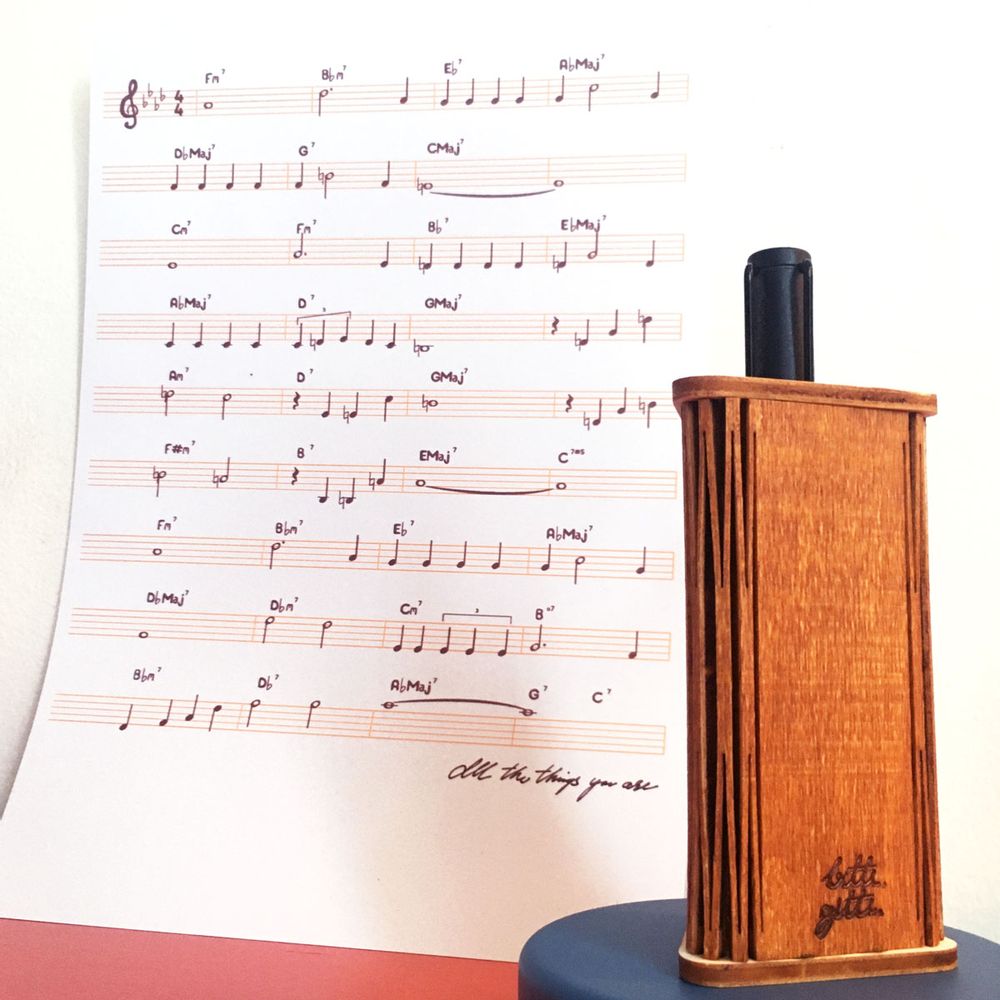 4
4
Fm7 Bbm7 Eb7 AbMaj7
DbMaj7 G7 CMaj7
Cm7 Fm7 Bb7 EbMaj7
AbMaj7 D7 3 GMaj7
Am7 D7 GMaj7
F#m7 B7 EMaj7 C7#5
Fm7 Bbm7 Eb7 AbMaj7
DbMaj7 Dbm7 Cm7 3 B°7
Bbm7 Db7 AbMaj7 G7 C7
All the things you are
bitti
gitti..